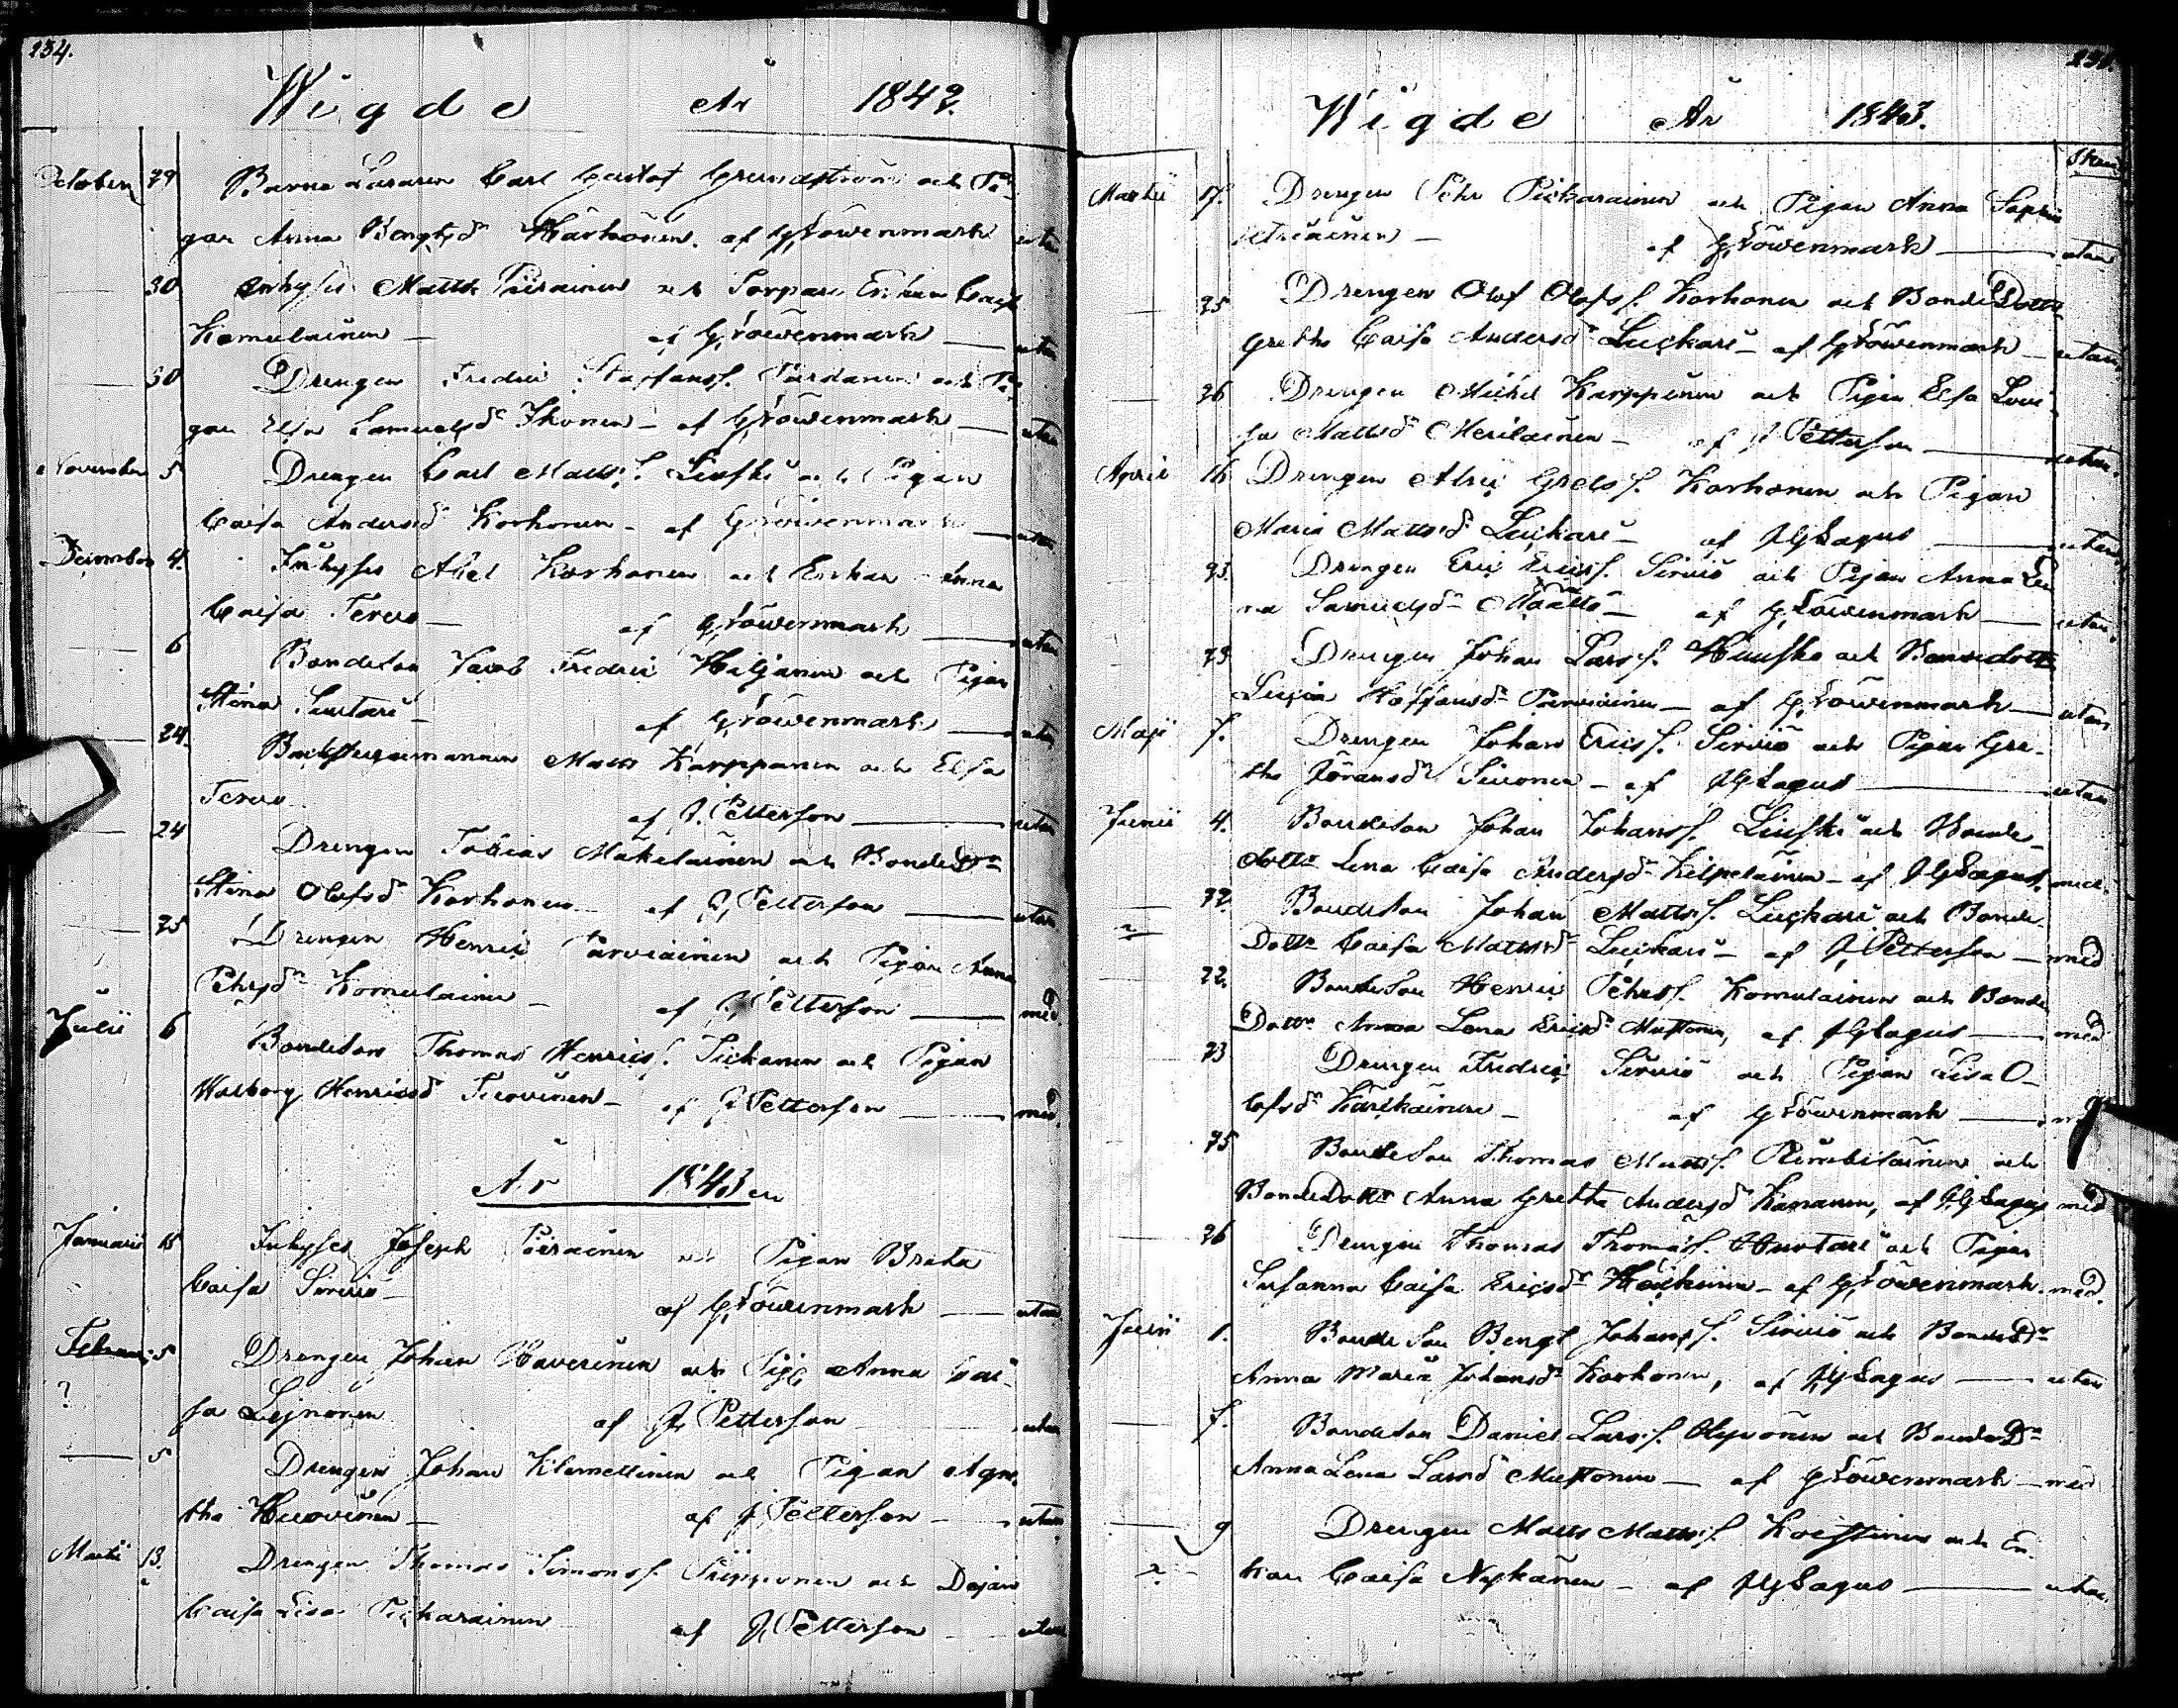 234.
Wigde År 1842.
October 29 Barna Läraren Carl Gustaf Grundström och Pi-
gan Anna Bengtsdr Karhonen. af G, Löwenmark utan
30 Inhyses Matts Piirainen och Torpare Enkan Caisa
Komulainen – af G, Löwenmark utan
30 Drengen Fredric Staffanss. och Pi-
gan Elsa Samuelsdr Ikonen – af G, Löwenmark utan
November 5 Drengen Carl Matts S. Liuski och Pigan
Caisa Andersdr Korhonen – af G, Löwenmark utan
December 4. Inhyses Abel Korhonen och Enkan Anna
Caisa Tervo – af G, Löwenmark utan
6 Bondeson Jacob Fredric Hiljanen och Pigan
Stina Suutari – af G, Löwenmark utan
24. Backstugumannen Matts Karppanen och Elsa
Tervo af J. Petterson utan
24 Drengen Tobias Makelainen och BondeDr
Stina Olofsdr Korhonen – af J, Petterson utan
25 Drengen Henric Parviainen och Pigan Anna
Pehrsdr Komulainen – af J. Petterson med
Julii 6 Bondeson Thomas Henricss. Tickanen och Pigan
Walborg Henricsdr – af J. Petterson med.
År 1843
Januarii 15 Inhyses Joseph Piirainen och Pigan Brita
Caisa Sirviö – af G, Löwenmark utan
Februarii 5 Drengen Johan Haverinen och Pig. Anna Cai-
? sa af J. Petterson utan
5 Drengen Johan Klemettinen och Pigan Agne-
tha Huovinen – af J. Petterson utan
Martii 13. Drengen Thomas Simonss. Piipponen och Dejan
Caisa Lisa Pickarainen af J. Petterson utan
Wigde År 1843.
Martii 17. Drengen Pehr Pickarainen och Pigan Anna Sophia
– af G, Löwenmark utan
25 Drengen Olof Olofs S. Korhonen och BondeDottr
Gretha Caisa Andersdr Luckari – af G, Löwenmark utan
26 Drengen Michel Karppinen och Pigan Elsa Loui-
sa Mattsdr Merilainen – af J Petterson utan.
April 16 Drengen Grels S. Korhonen och Pigan
Maria Mattsdr Luckari – af J G Lagus utan
23. Drengen Eric Ericss. Sirviö och Pigan Anna Le-
na Samuelsdr Määttä – af G, Löwenmark utan.
23. Drengen Johan Larss. och Bondedottr
Lucia Staffansdr Parviainen – af G, Löwenmark utan
Maji 7. Drengen Johan Ericss. Sirviö och Pigan Gre-
tha Göransdr – af J G Lagus utan
Junii 4. Bondeson Johan Johanss. Liuski och Bonde
dottr Lena Caisa Andersdr Kilpeläinen – af J G Lagus. med.
22. Bondeson Johan Matts S. Luckari och Bonde
Dottr Caisa Mattsdr Luckari – af J. Petterson – med
22. Bondeson Henric Pehrss. Komulainen och Bonde
Dottr Anna Lena Ericsdr Mustonen, af J G Lagus med
23 Drengen Fredric Sirviö och Pigan Lisa O-
lofsdr Karckainen – af G Löwenmark
25 Bondeson Thomas Matts S. Rimbilainen och
BondeDottr Anna Gretha Andersdr Kananen, af J, G Lagus med
26 Drengen Thomas Thomas S. och Pigan
Susanna Caisa Ericsdr – af G, Löwenmark. med.
Julii 1. Bonde Son Bengt Johans S. Sirviö och BondeDr
Anna Maria Johansdr Korhonen, af J G Lagus utan
7. Bondeson Daniel Larss. Hyvönen och BondeDr
Anna Lena Larsdr Mustonen – af G Löwenmark – med
9 Drengen Matts Matts S. Koistinen och En-
kan Caisa Nykänen – af J G Lagus utan.